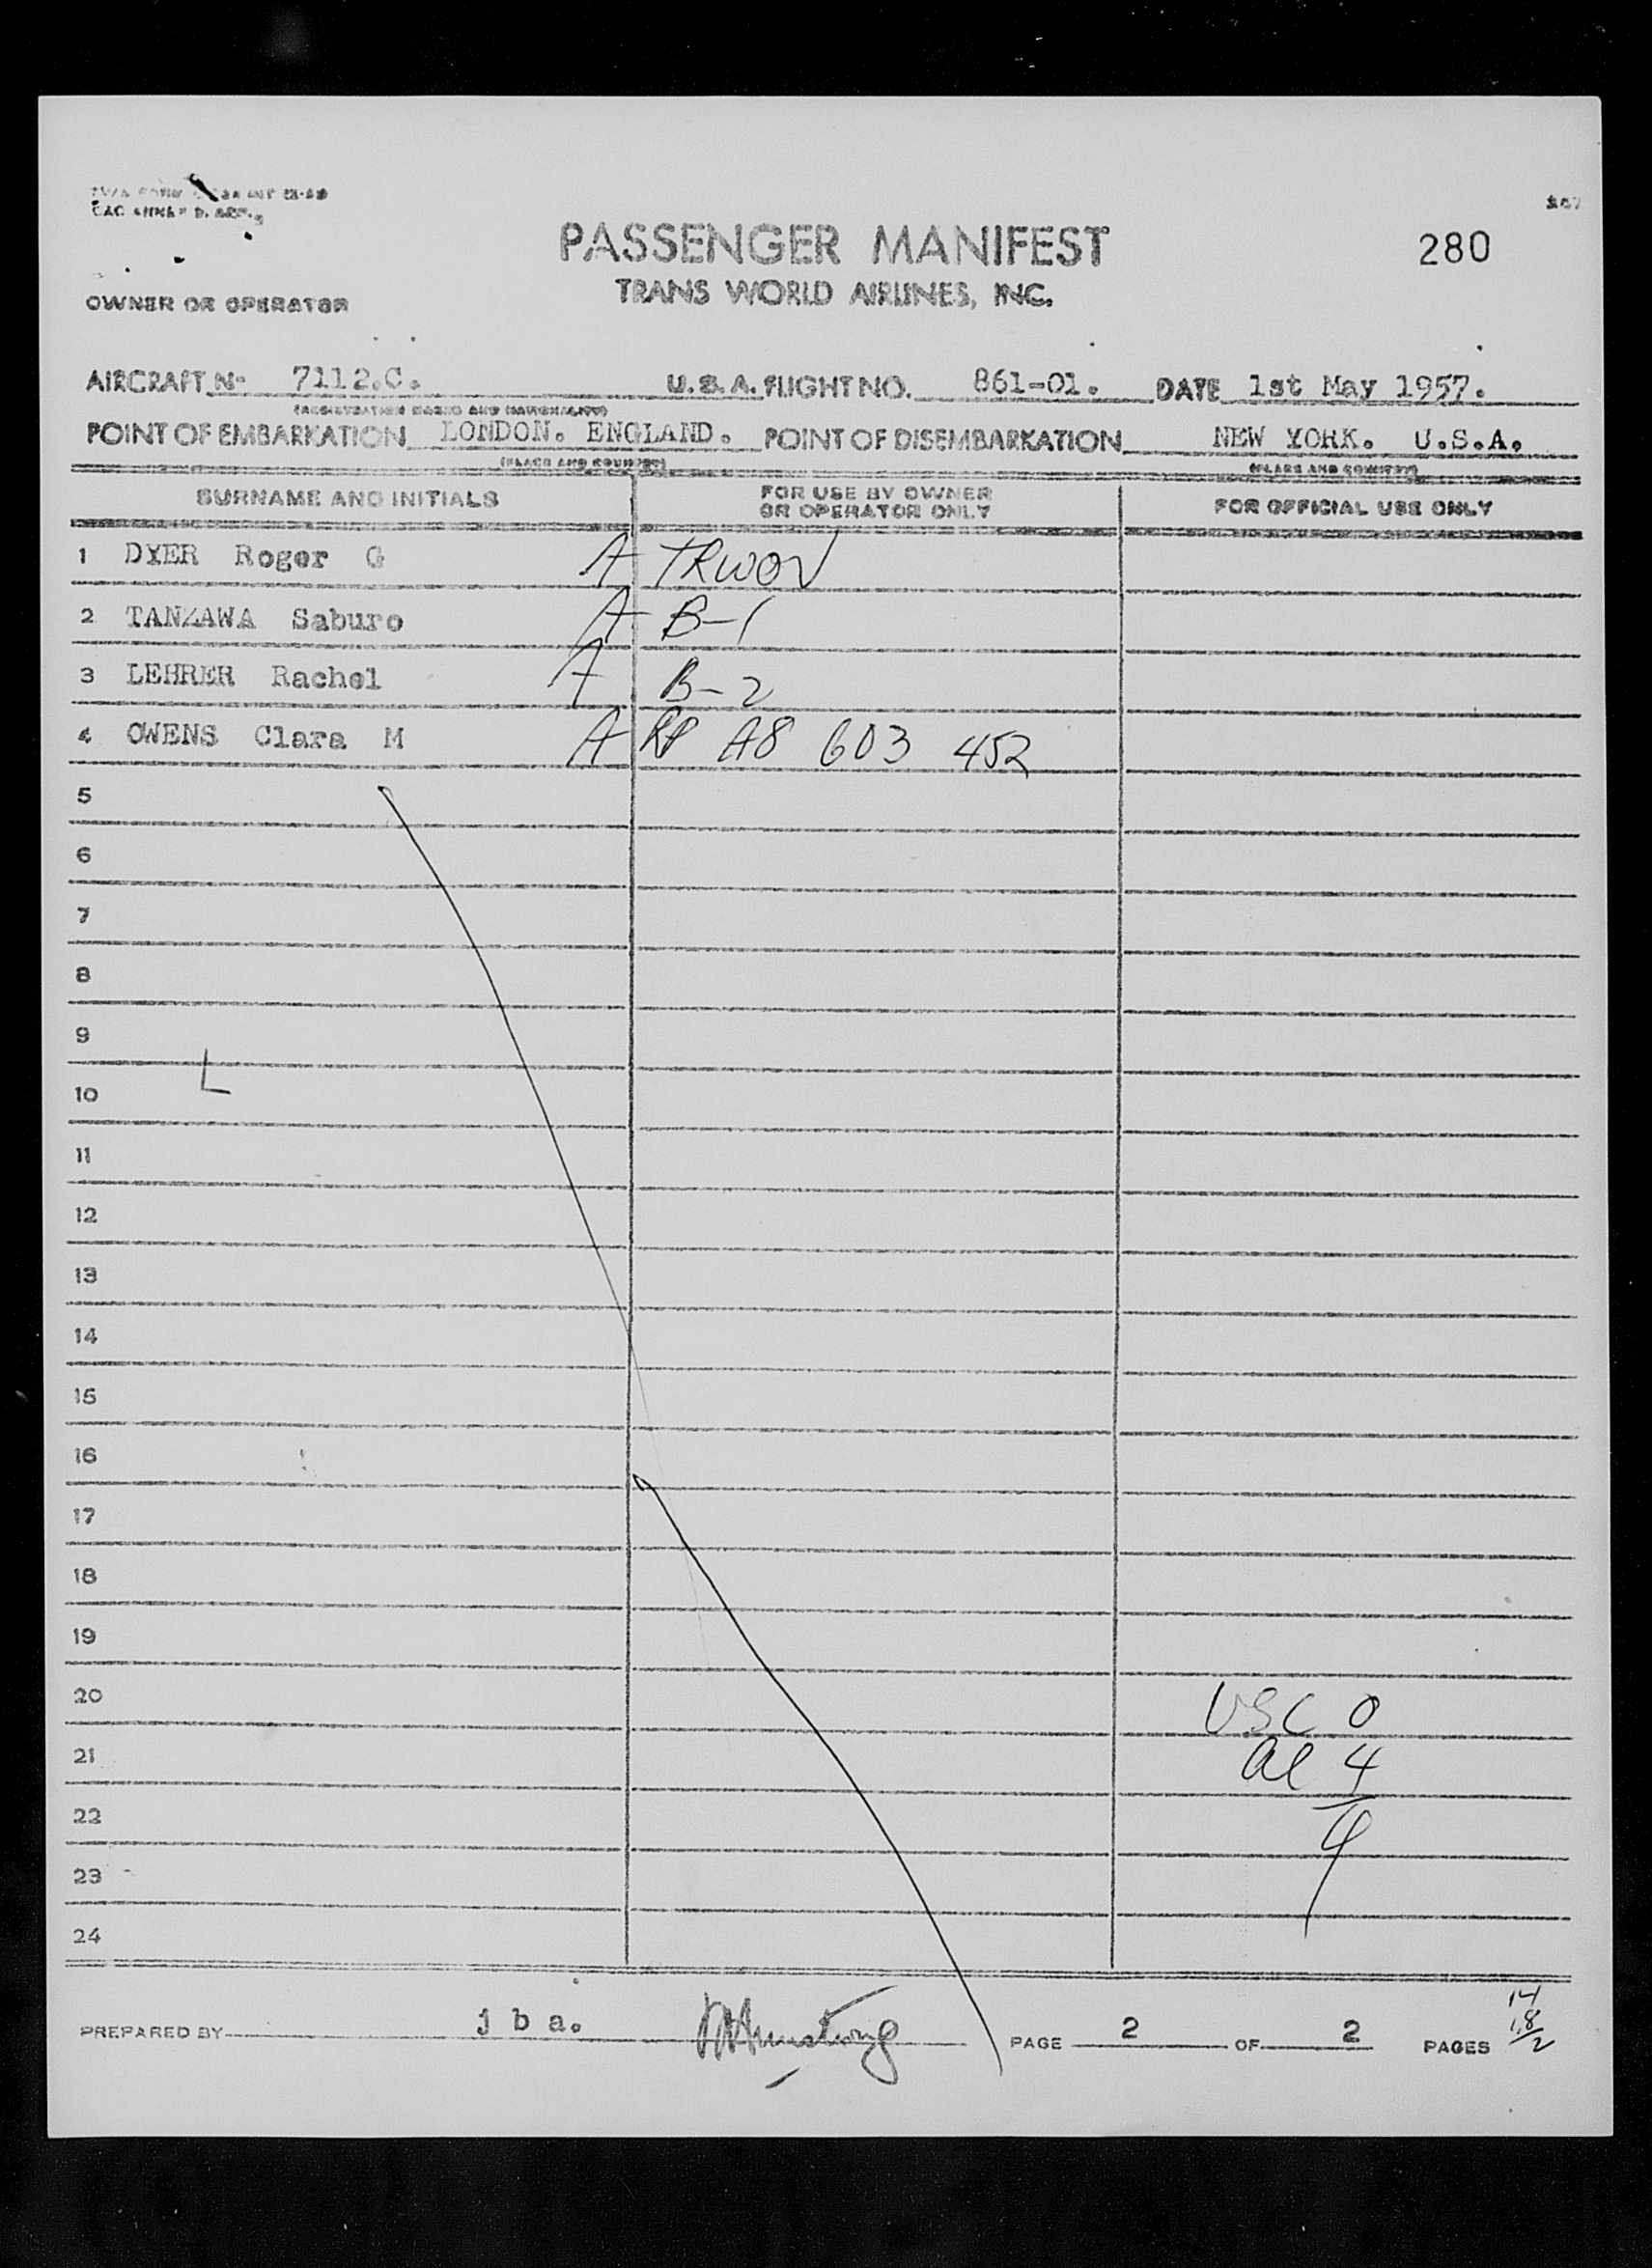 280
PASSENGER MANIFEST
TRANS WORLD AIRLINES, INC.
OWNER OR OPERATOR
AIRCRAFT No 7112.C. U.S.A. FLIGHT NO. 861-01. DATE 1st May 1957.
POINT OF EMBARKATION LONDON. ENGLAND. POINT OF DISEMBARKATION NEW YORK. U.S.A.
(PLACE AND COUNTRY) (PLACE AND COUNTRY)
SURNAME AND INITIALS FOR USE BY OWNER OR OPERATOR ONLY FOR OFFICIAL USE ONLY
1 DYER Roger G A TRWOV
2 TANZAWA Saburo A B-1
3 LEHRER Rachel A B-2
4 OWENS Clara M A RP A8 603 452
5
6
7
8
9
10 L
11
12
13
14
15
16
17
18
19
20 USC 0
21 al 4
22 4
23
24
PREPARED BY j b a. PAGE 2 OF 2 PAGES